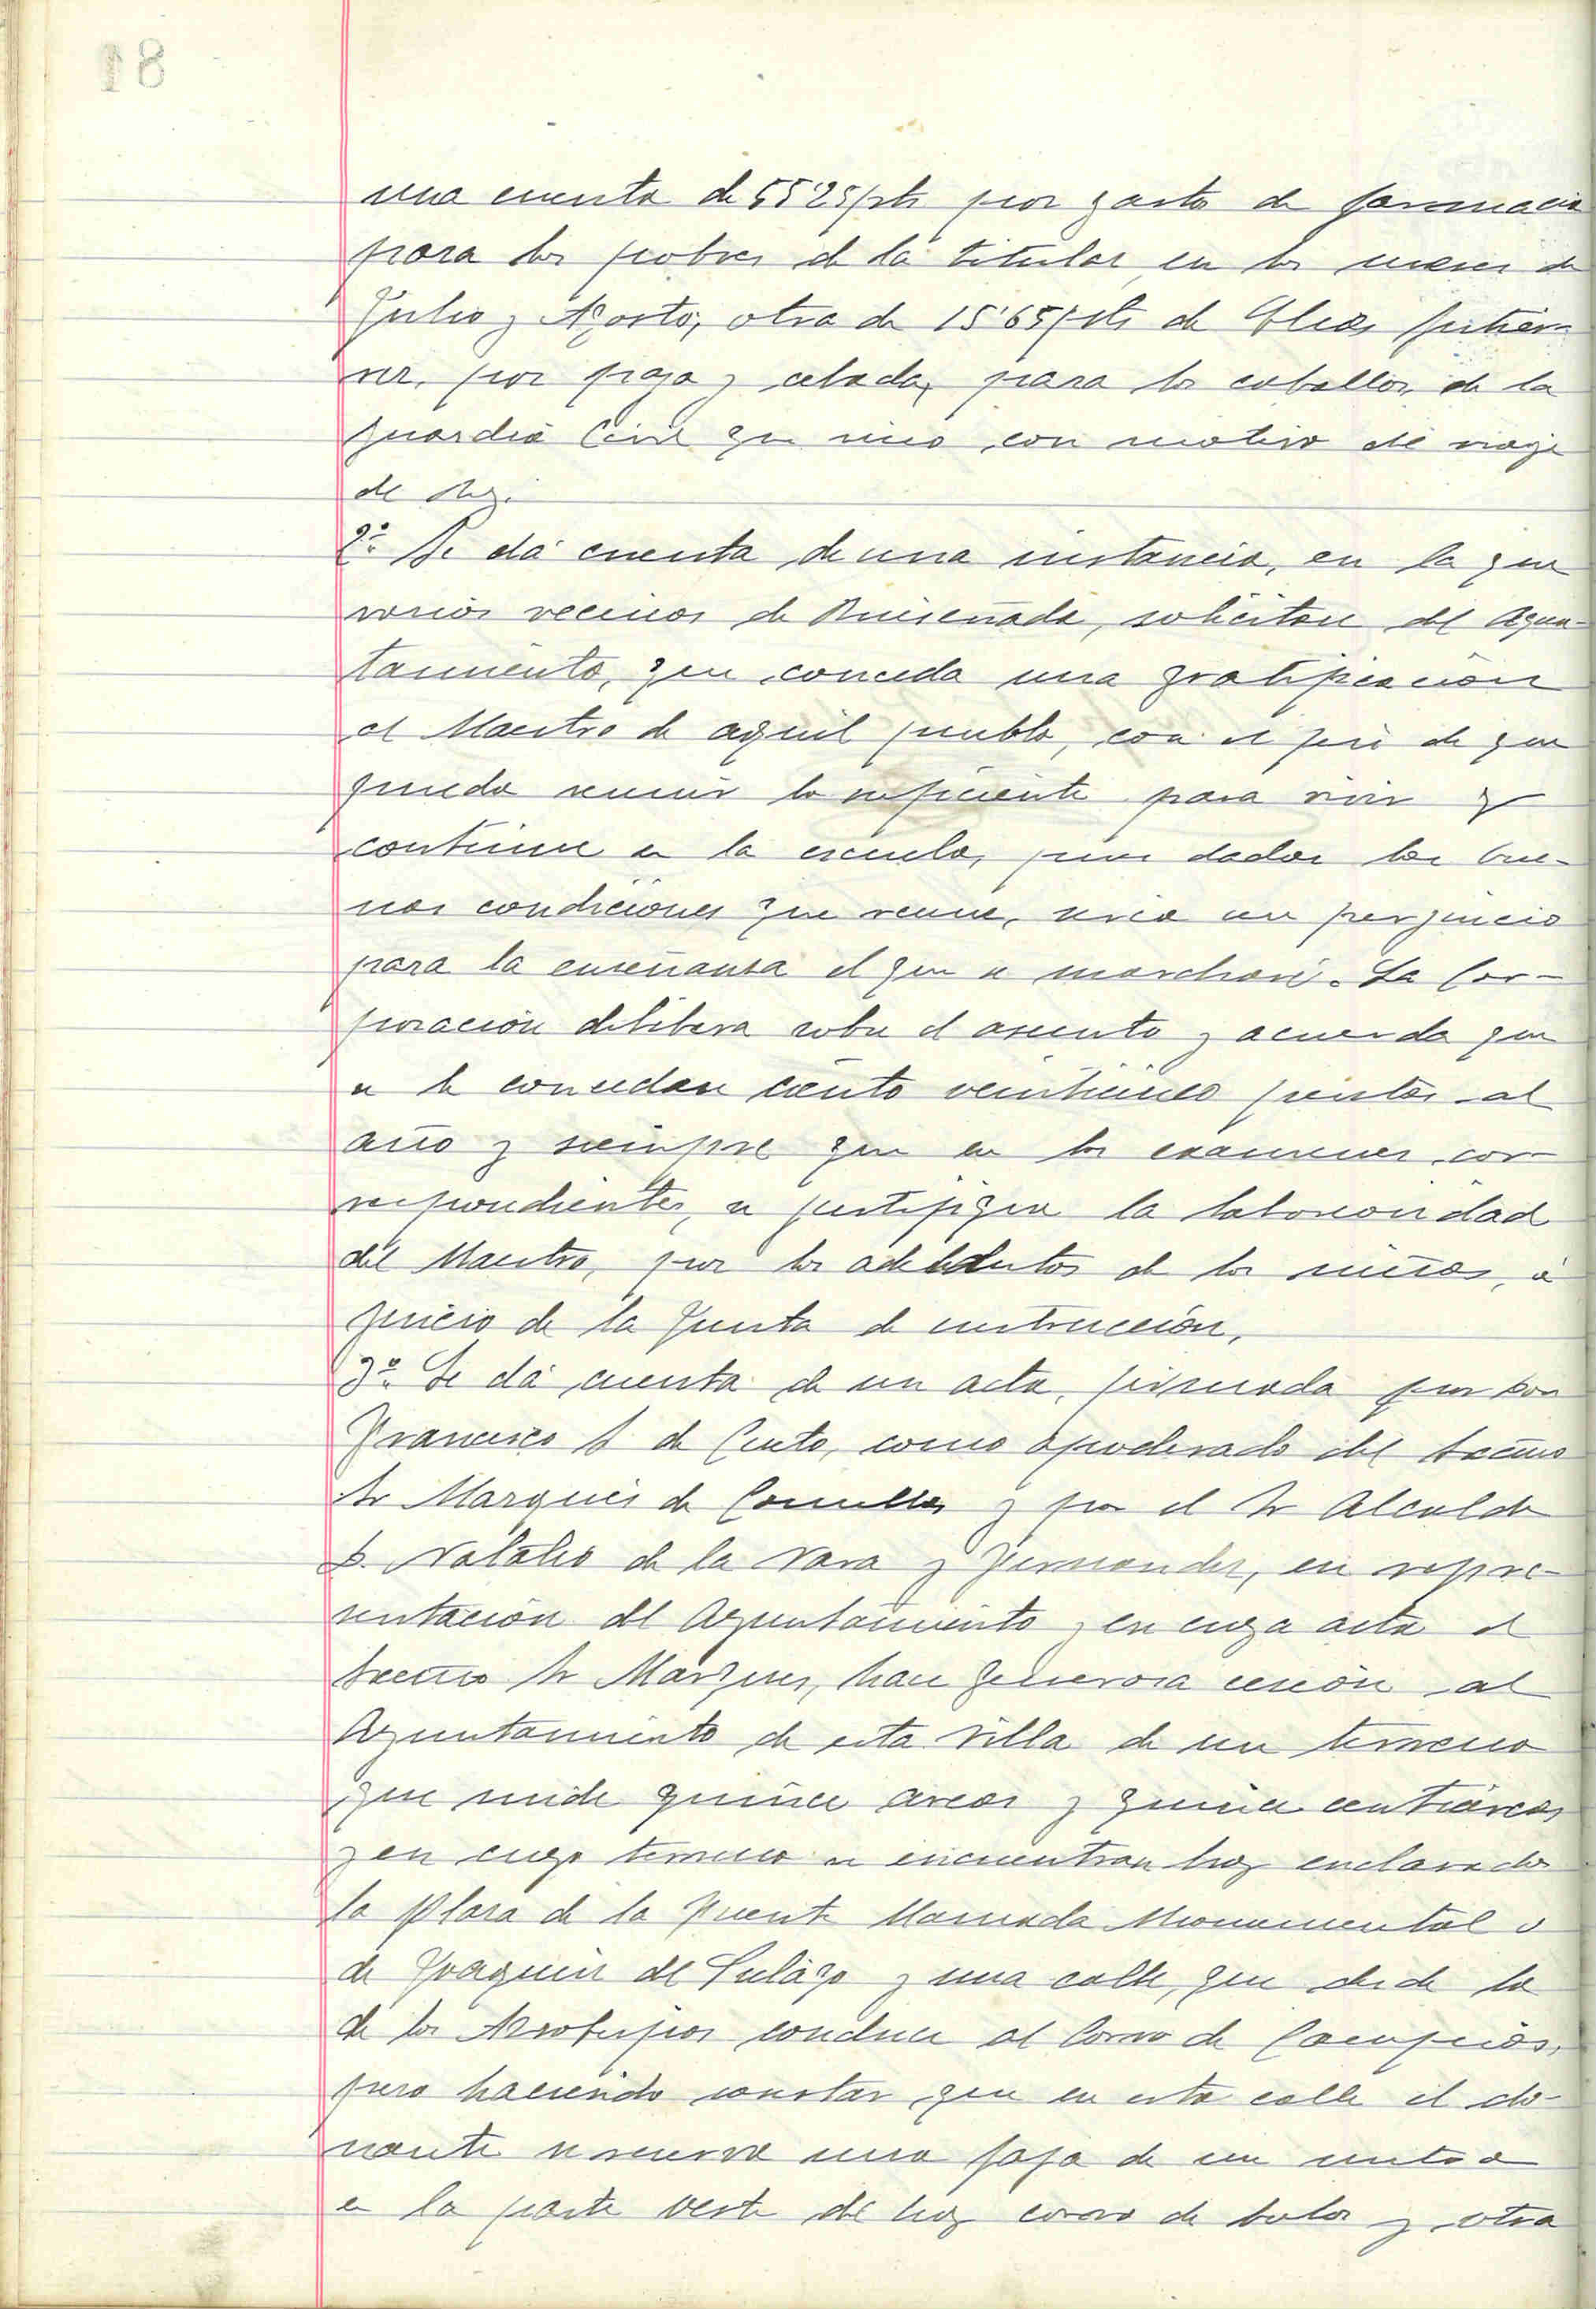 una cuenta de 55'25 pts por gasto de farmacia
para los pobres de la titular en los meses de
Julio y Agosto, otra de 15'65 pts de Elias Gutier-
rez, por paja y cebada, para los caballos de la
guardia Civil que vino con motivo del viaje
del Rey.
2º Se dá cuenta de una instancia, en la que
varios vecinos de Ruiseñada, solicitan del Ayun-
tamiento, que conceda una gratificación
al Maestro de aquel pueblo, con el fin de que
pueda reunir lo suficiente para vivir y
continue en la escuela, pues dadas las bue-
nas condiciones que reune, sería un perjuicio
para la enseñanza el que se marchase. La Cor-
poración delibera sobre el asunto y acuerda que
se le concedan ciento veinticinco pesetas al
año y siempre que en los examenes cor-
respondientes, se justifique la laboriosidad
del Maestro, por los adelantos de los niños, á
juicio de la Junta de instrucción.
3º Se dá cuenta de un acta, firmada por Don
Francisco S. de Cueto, como apoderado del Excmo
Sr Marqués de Comillas y por el Sr Alcalde
D. Natalio de la Vara y Fernandez, en repre-
sentación del Ayuntamiento y en cuya acta el
Excmo Sr Marques, hace generosa cesión al
Ayuntamiento de esta Villa de un terreno
que mide quince areas y quince centiáreas
y en cuyo terreno se encuentran hoy enclavados
la plaza de la Fuente llamada Monumental o
de Joaquin del Piélago y una calle, que desde la
de los Arzobispos conduce al Corro de Campios,
pero haciendo constar que en esta calle el do-
nante se reserva una faja de un metro
en la parte Oeste del hoy corro de bolos y otra